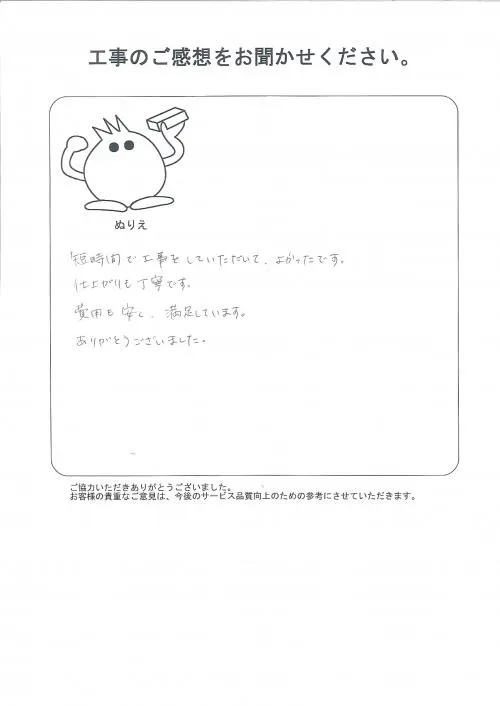 工事のご感想をお聞かせください。
ぬりえ
短時間で工事をしていただいて、よかったです。
仕上がりも丁寧です。
費用も安く、満足しています。
ありがとうございました。
ご協力いただきありがとうございました。
お客様の貴重なご意見は、今後のサービス品質向上のための参考にさせていただきます。